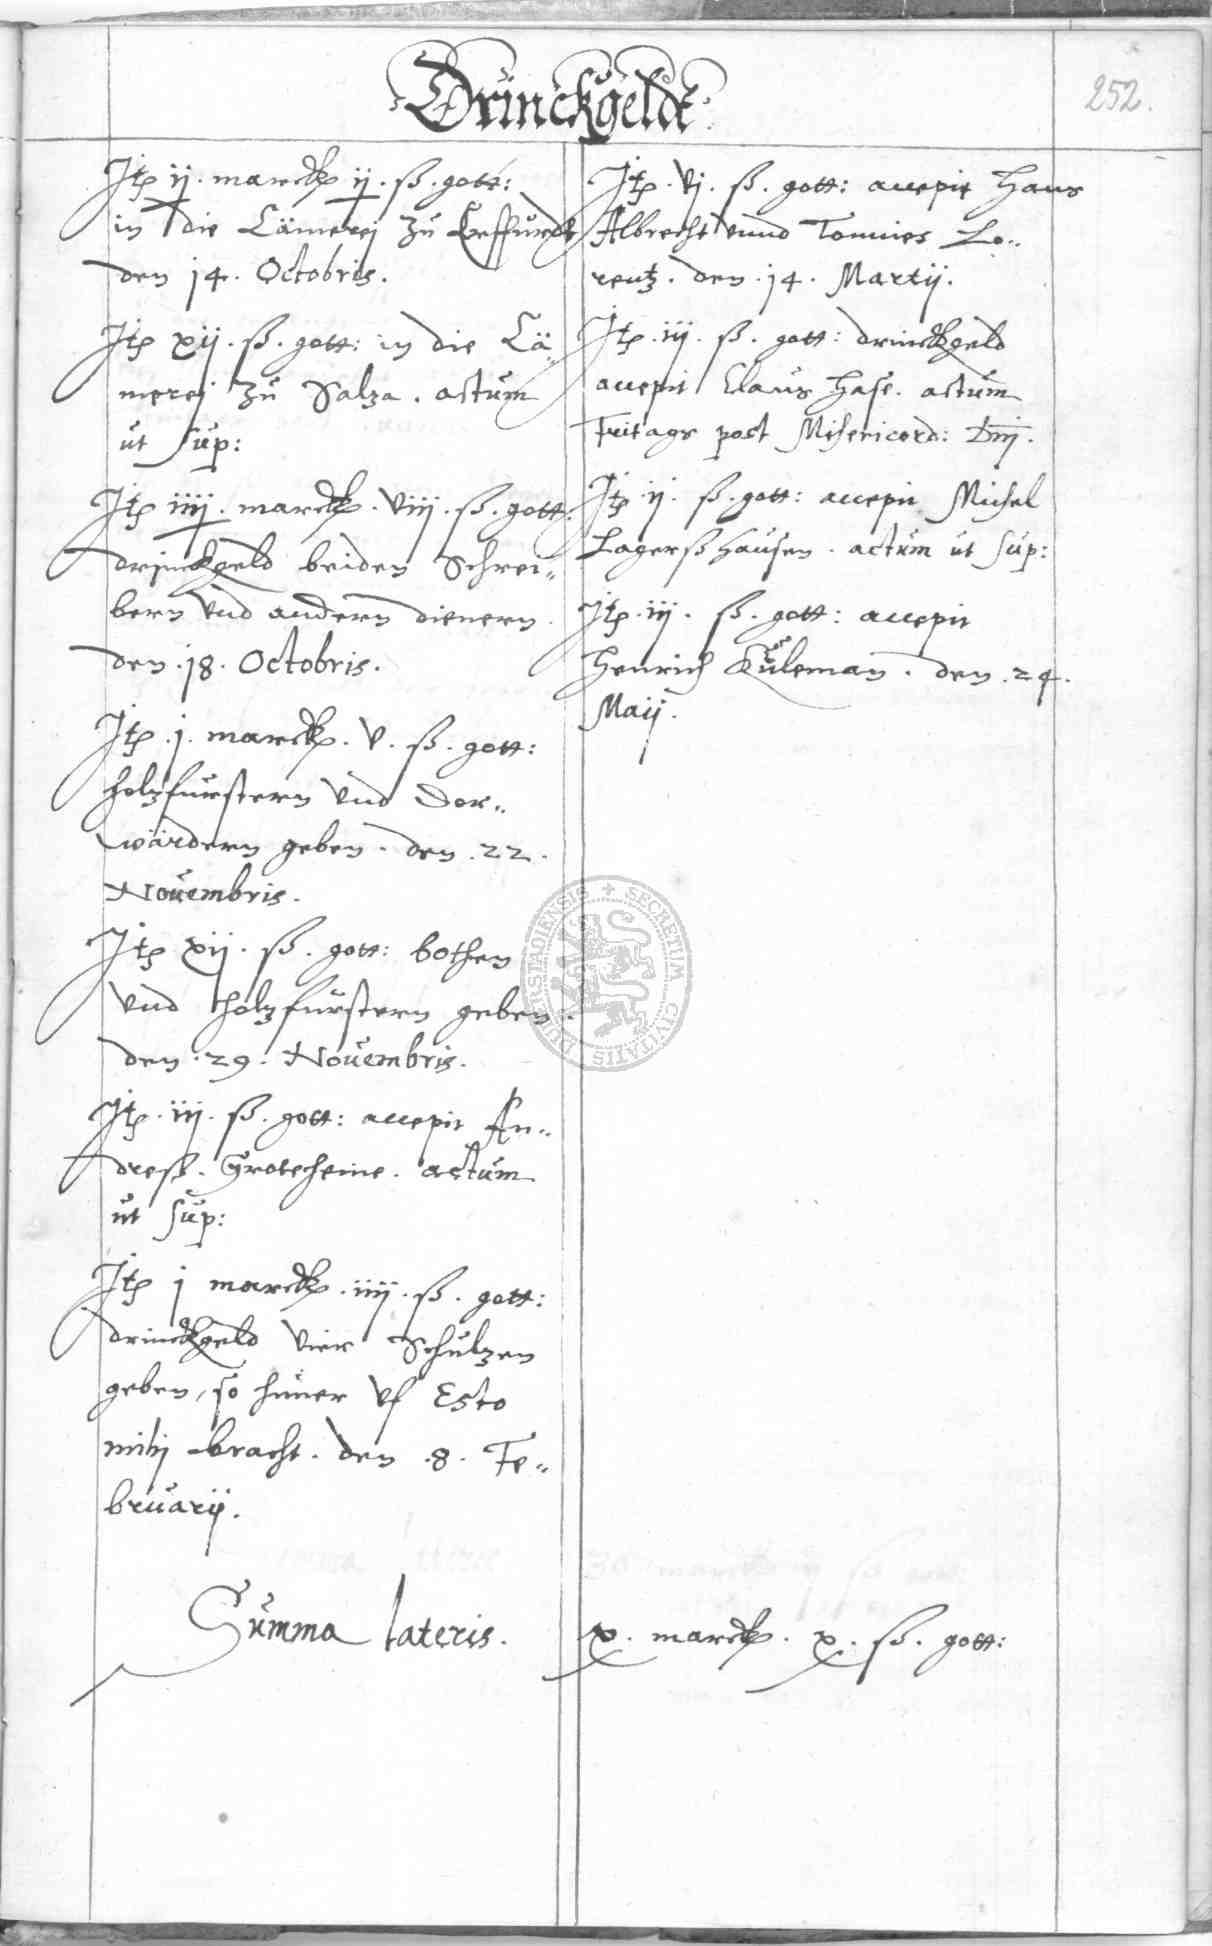 Drinckgeldt
252.
Jtz ij. marck ij. ß. gott:
in die Cämerej zu Erffurdt
den 14. Octobris.
Jtz xij. ß. gott: in die Cä-
merej zu Salza. actum
ut sup:
Jtz iiij. marck. viij. ß. gott.
drinckgeld beiden Schrei-
bern vnd andern dienern.
den .18. Octobris.
Jtz .j. marck. v. ß. gott:
holzfurstern vnd Dor-
wärdern geben. den .22.
Nouembris.
Jtz xij. ß. gott: bothen
vnd holzfurstern geben.
den .29. Nouembris.
Jtz .iij. ß. gott: accepit An-
dreß. Grotheheine. actum
ut sup:
Jtz j marck .iiij. ß. gott:
drinckgeld vier Schultzen
geben, so hüner vf Esto
mihj bracht. den .8. Fe-
bruarij.
Jtz .vj. ß. gott: accepit Hans
Albrecht vnnd Tonnies Lo-
rentz. den .14. Martij.
Jtz .iij. ß. gott: drinckgeld
accepit Claus Hase. actum
Freitags post Misericord: Dnj.
Jtz ij. ß. gott: accepit Michel
Lagerßhausen. actum ut sup:
Jtz .iij. ß. gott: accepit
Henrich Kuleman. den .24.
Maij.
Summa lateris. x. marck. x. ß. gott:
SECRETUM CIVITATIS DUDERSTADIENSIS